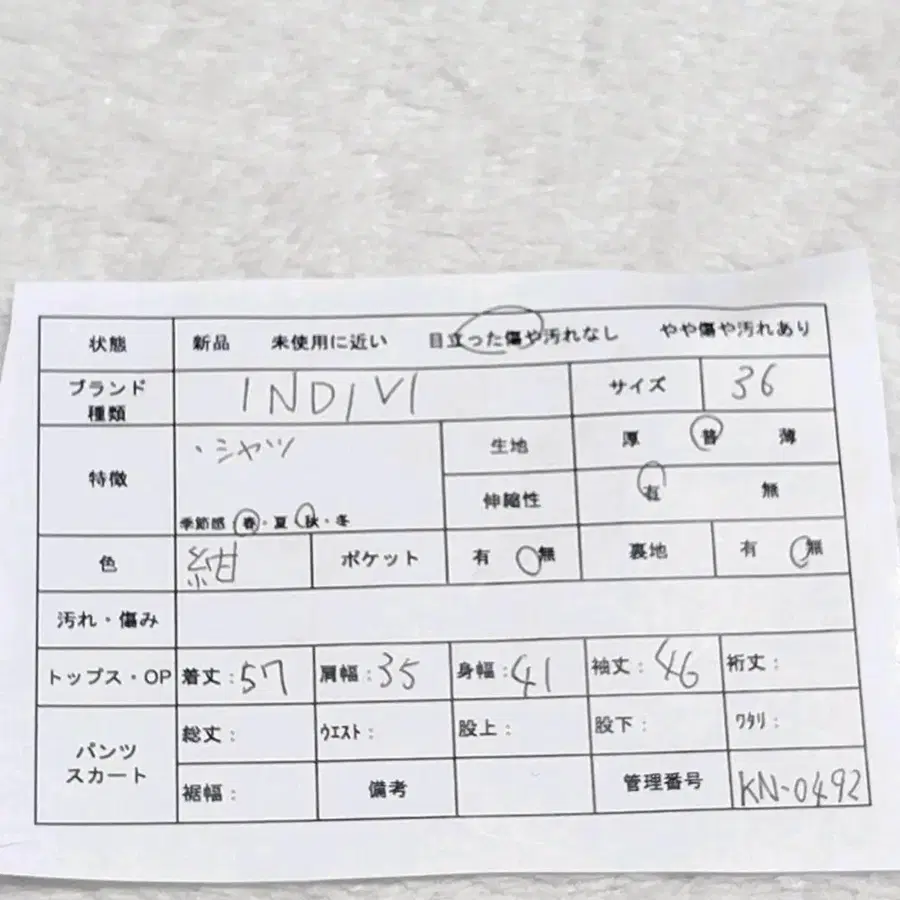 状態 新品 未使用に近い 目立った傷や汚れなし やや傷や汚れあり
ブランド 種類 INDIVI サイズ 36
特徴 ・シャツ 生地 厚 普 薄
季節感 春・夏・秋・冬 伸縮性 有 無
色 ポケット 有 無 裏地 有 無
汚れ・傷み
トップス・OP 着丈:57 肩幅:35 身幅:41 袖丈:46 裄丈:
パンツ スカート 総丈: ウエスト: 股上: 股下: ワタリ:
裾幅: 備考 管理番号 KN-0492